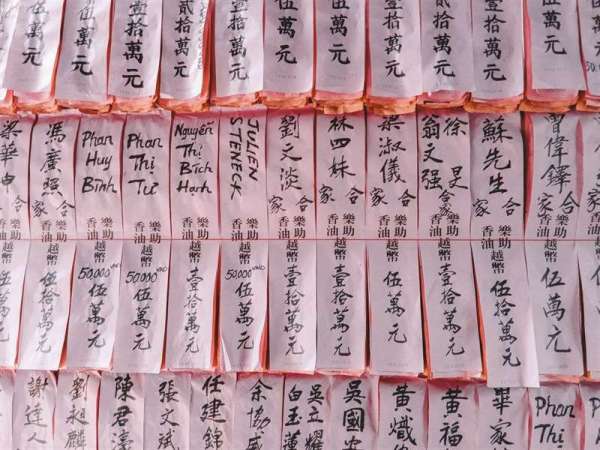 伍萬元
伍萬元
壹拾萬元
拾萬元
壹拾萬元
伍萬元
壹拾萬元
貳拾萬元
拾萬元
伍萬元
馮廣照
合家
樂助越幣
香油
伍拾萬元
Phan
Huy
Bình
樂助越幣
香油
50.000 VND
伍萬元
Phan
Thị
Tư
樂助越幣
香油
50.000 VND
伍萬元
Nguyễn
Thị
Bích
Hạnh
樂助越幣
香油
壹拾萬元
JULIEN
STENECK
樂助越幣
香油
50.000 VND
伍萬元
劉文淡
合家
樂助越幣
香油
壹拾萬元
林四妹
合家
樂助越幣
香油
壹拾萬元
梁淑儀
合家
樂助越幣
香油
伍萬元
徐旻
翁文强
合家
樂助越幣
香油
壹拾萬元
蘇先生
合家
樂助越幣
香油
伍拾萬元
曾偉鐸
合家
樂助越幣
香油
伍萬元
謝達人
劉昶麟
陳君濤
張文斌
任建錦
余協威
吳立耀
白玉蓮
吳國
黃熾
黃福
畢家
Phan
Thị
Phan